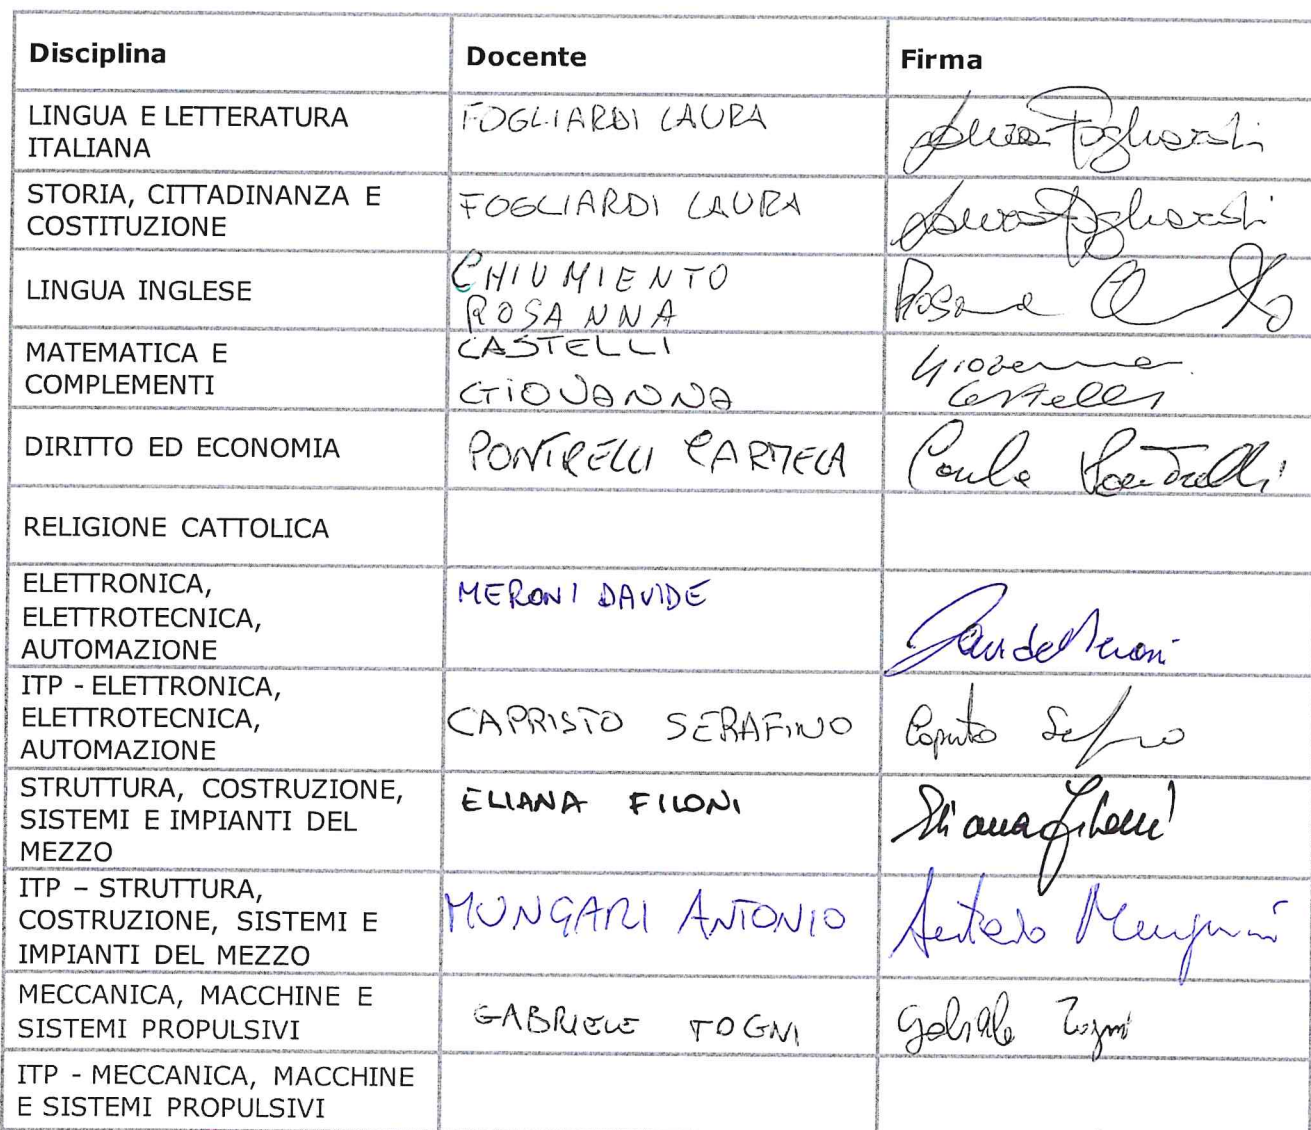 Disciplina Docente Firma
LINGUA E LETTERATURA
ITALIANA
FOGLIARDI LAURA
Laura Fogliardi
STORIA, CITTADINANZA E
COSTITUZIONE
FOGLIARDI LAURA
Laura Fogliardi
LINGUA INGLESE
CHIUMIENTO
ROSANNA
MATEMATICA E
COMPLEMENTI
CASTELLI
GIOVANNA
Giovanna
Castelli
DIRITTO ED ECONOMIA
PONTRELLI CARMELA
RELIGIONE CATTOLICA
ELETTRONICA,
ELETTROTECNICA,
AUTOMAZIONE
MERONI DAVIDE
Davide Meroni
ITP - ELETTRONICA,
ELETTROTECNICA,
AUTOMAZIONE
CAPRISTO SERAFINO
STRUTTURA, COSTRUZIONE,
SISTEMI E IMPIANTI DEL
MEZZO
ELIANA FILONI
Eliana Filoni
ITP – STRUTTURA,
COSTRUZIONE, SISTEMI E
IMPIANTI DEL MEZZO
MUNGARI ANTONIO
Antonio Mungari
MECCANICA, MACCHINE E
SISTEMI PROPULSIVI
GABRIELE TOGNI
Gabriele Togni
ITP - MECCANICA, MACCHINE
E SISTEMI PROPULSIVI